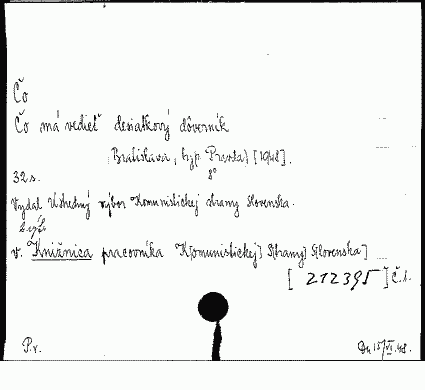 Čo
Čo má vedieť desiatkový dôverník
Bratislava, typ. Pravda) [1948].
8°
32 s.
Vydal Ústredný výbor Komunistickej strany Slovenska.
v. Knižnica pracovníka K[omunistickej] S[trany] S[lovenska]
[212395] Č.1.
P.v.